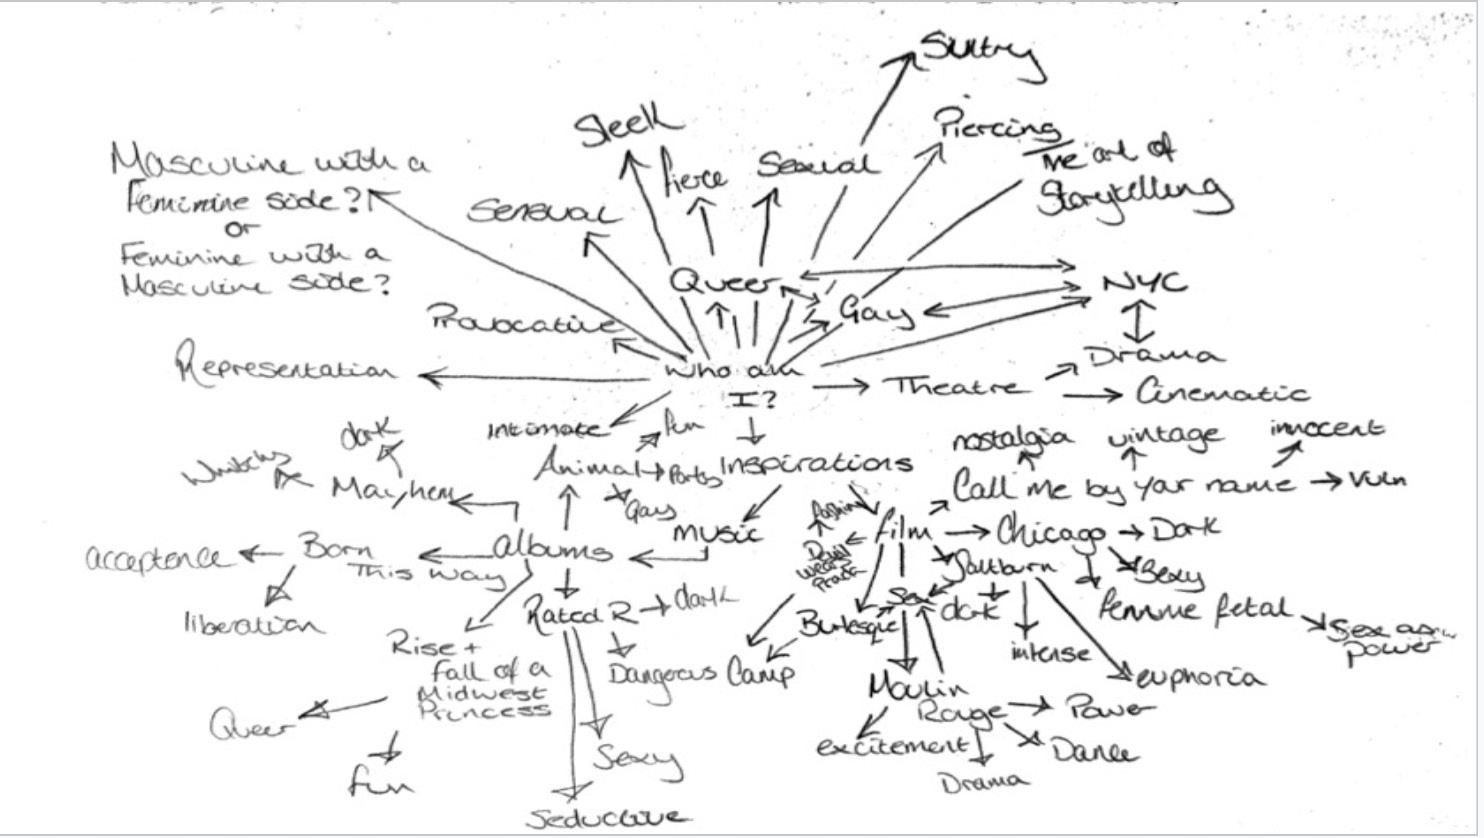 Sultry
Sleek
Piercing
Masculine with a
Feminine side?
or
Feminine with a
Masculine side?
fierce
Sexual
The art of
Storytelling
Sensual
Queer
NYC
Gay
Provocative
Drama
Representation
Who am
I?
Theatre
Cinematic
Intimate
fun
dark
nostalgia
vintage
innocent
Animal
Party
Inspirations
Mayhem
Call me by your name
Vuln
Gay
fashion
music
film
Chicago
Dark
acceptence
Born
This way
albums
Devil
Wears
Prada
Saltburn
Sexy
liberation
Rated R
dark
Burlesque
Sex
dark
femme fetal
Sex as
power
Rise +
fall of a
Midwest
Princess
Dangerous
Camp
intense
euphoria
Moulin
Rouge
Power
Queer
excitement
Dance
Sexy
fun
Drama
Seductive